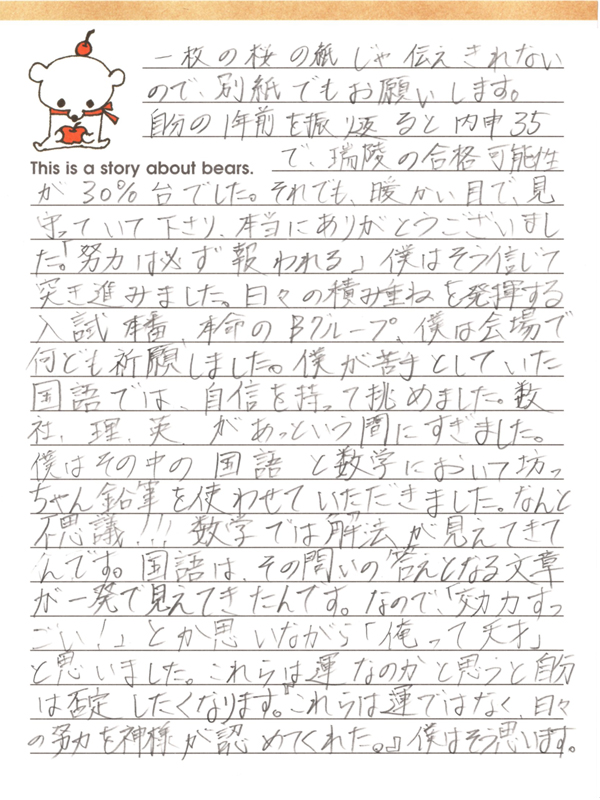 一枚の桜の紙じゃ伝えきれない
ので、別紙でもお願いします。
自分の1年前を振り返ると内申35
This is a story about bears.
で、瑞陵の合格可能性
が30%台でした。それでも、暖かい目で、見
守っていて下さり、本当にありがとうございまし
た。「努力は必ず報われる」僕はそう信じて
突き進みました。日々の積み重ねを発揮する
入試本番、本命のBグループ、僕は会場で
何ども祈願しました。僕が苦手としていた
国語では、自信を持って挑めました。数、
社、理、英、があっという間にすぎました。
僕はその中の国語と数学において坊っ
ちゃん鉛筆を使わせていただきました。なんと
不思議!!!数学では解法が見えてきて
んです。国語は、その問いの答えとなる文章
が一発で見えてきたんです。なので、「効力すっ
ごい!」とか思いながら「俺って天才」
と思いました。これらは運なのかと思うと自分
は否定したくなります。『これらは運ではなく、日々
の努力を神様が認めてくれた。』僕はそう思います。